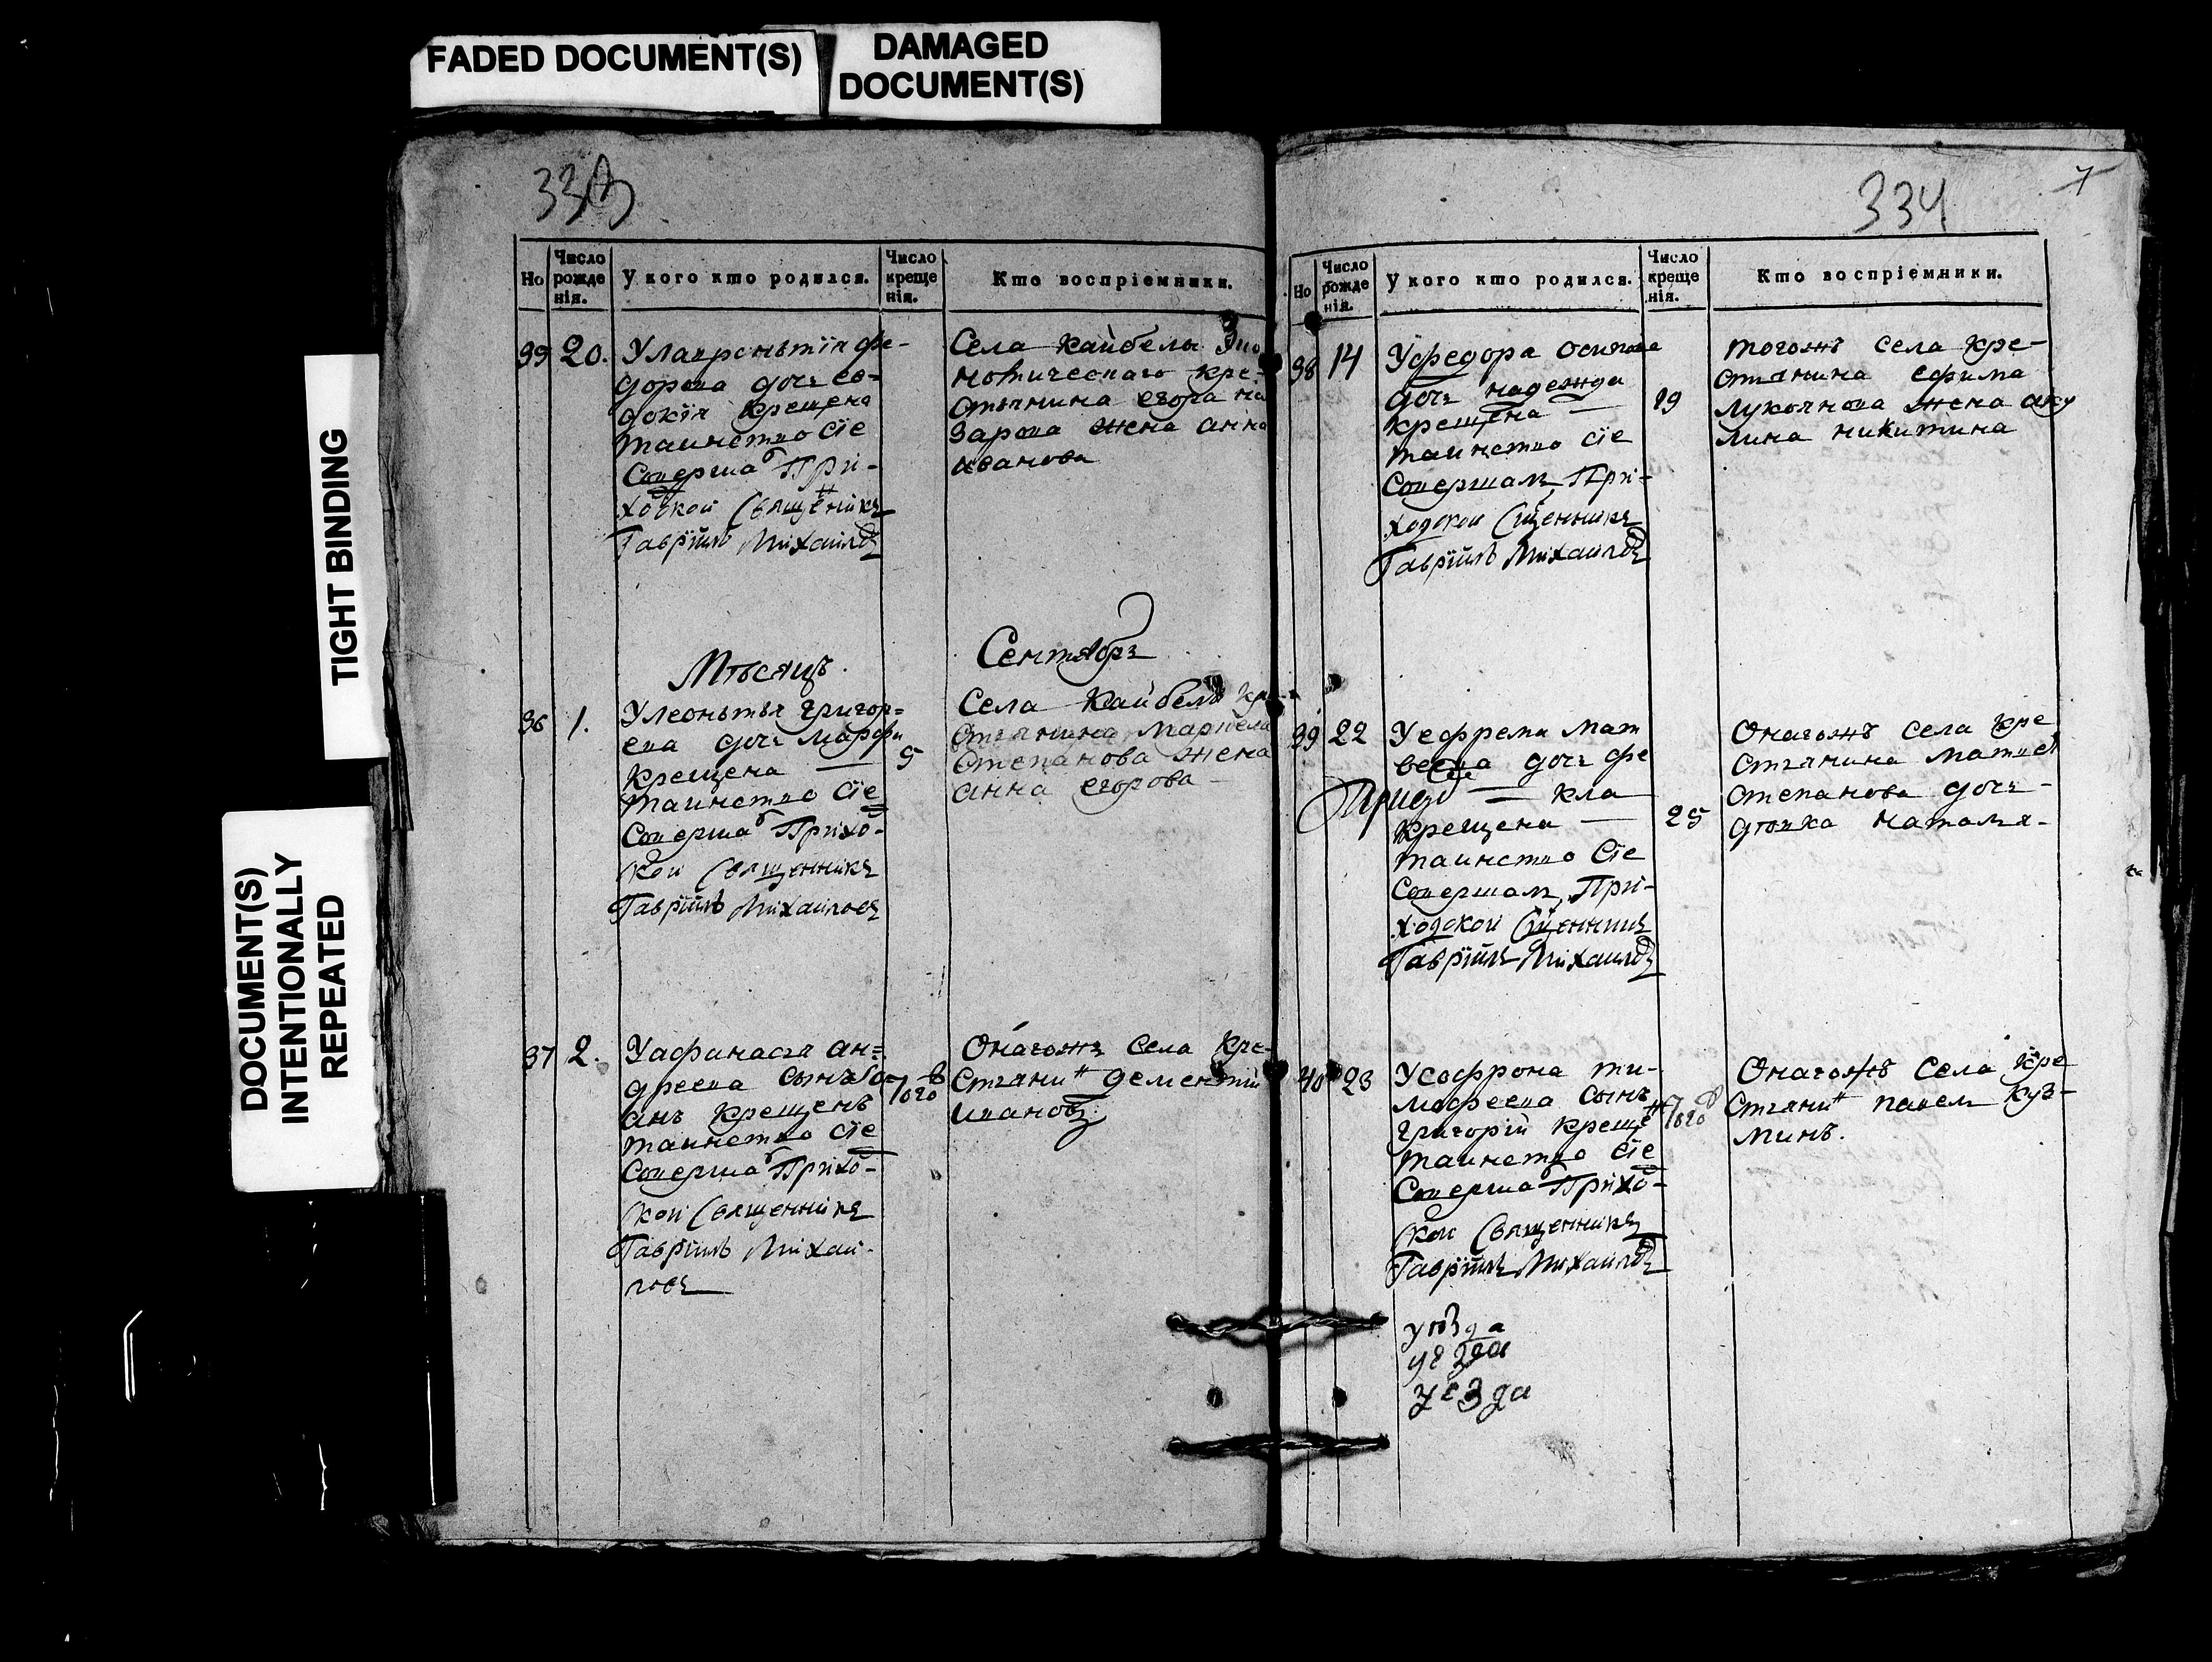 FADED DOCUMENT(S)
DAMAGED
DOCUMENT(S)
TIGHT BINDING
DOCUMENT(S)
INTENTIONALLY
REPEATED
333
Но
Число рожде нія.
У кого кто родился.
Число креще нія.
Кто воспріемники.
20.
У лаврентїя фе-
дорова дочь ев-
докїя крещена
таинство сїе
Соверша При-
ход̾кой Священникъ
Гаврїилъ Михаиловъ
Села Кайбелы
кре-
стьянина егора на
зарова жена анна
иванова
Мѣсяцъ
Сентябрь
36
1.
У леонтья григор=
ева дочь марфа
крещена —
таинство сїе
Соверша Прихо-
кой Священникъ
Гаврїилъ Михаиловъ
5
Села Кайбелъ
стьянина
Степанова жена
анна егорова
37
2.
У афанасья ан=
дреева сынъ
анъ крещенъ
таинство сїе
Соверша Прихо-
кой Священникъ
Гаврїилъ Михаи-
ловъ
Онагожъ села кре-
стьяни дементий
ивановъ
334
7
Но
Число рожде нія.
У кого кто родился.
Число креще нія.
Кто воспріемники.
38
14
У федора осипова
дочь надежда
крещена —
таинство сїе
Совершалъ При-
ходской Сщенникъ
Гаврїилъ Михаиловъ
19
тогожъ села кре-
стьянина ефима
лукоянова жена аку
лина никитина
39
22
У ефрема мат
веева дочь фе
— кла
крещена —
таинство сїе
Совершалъ При-
ходской Сщенникъ
Гаврїилъ Михаиловъ
25
Онагожъ села кре
стьянина матвея
степанова дочь-
девка наталья-
40
23
У софрона ти-
мофеева сынъ
григорїй креще
таинство сїе
Соверша Прихо-
кой Священникъ
Гаврїилъ Михаиловъ
Онагожъ села кре
стьяни павелъ куз-
минъ.
уѣзда
уезда
уезда